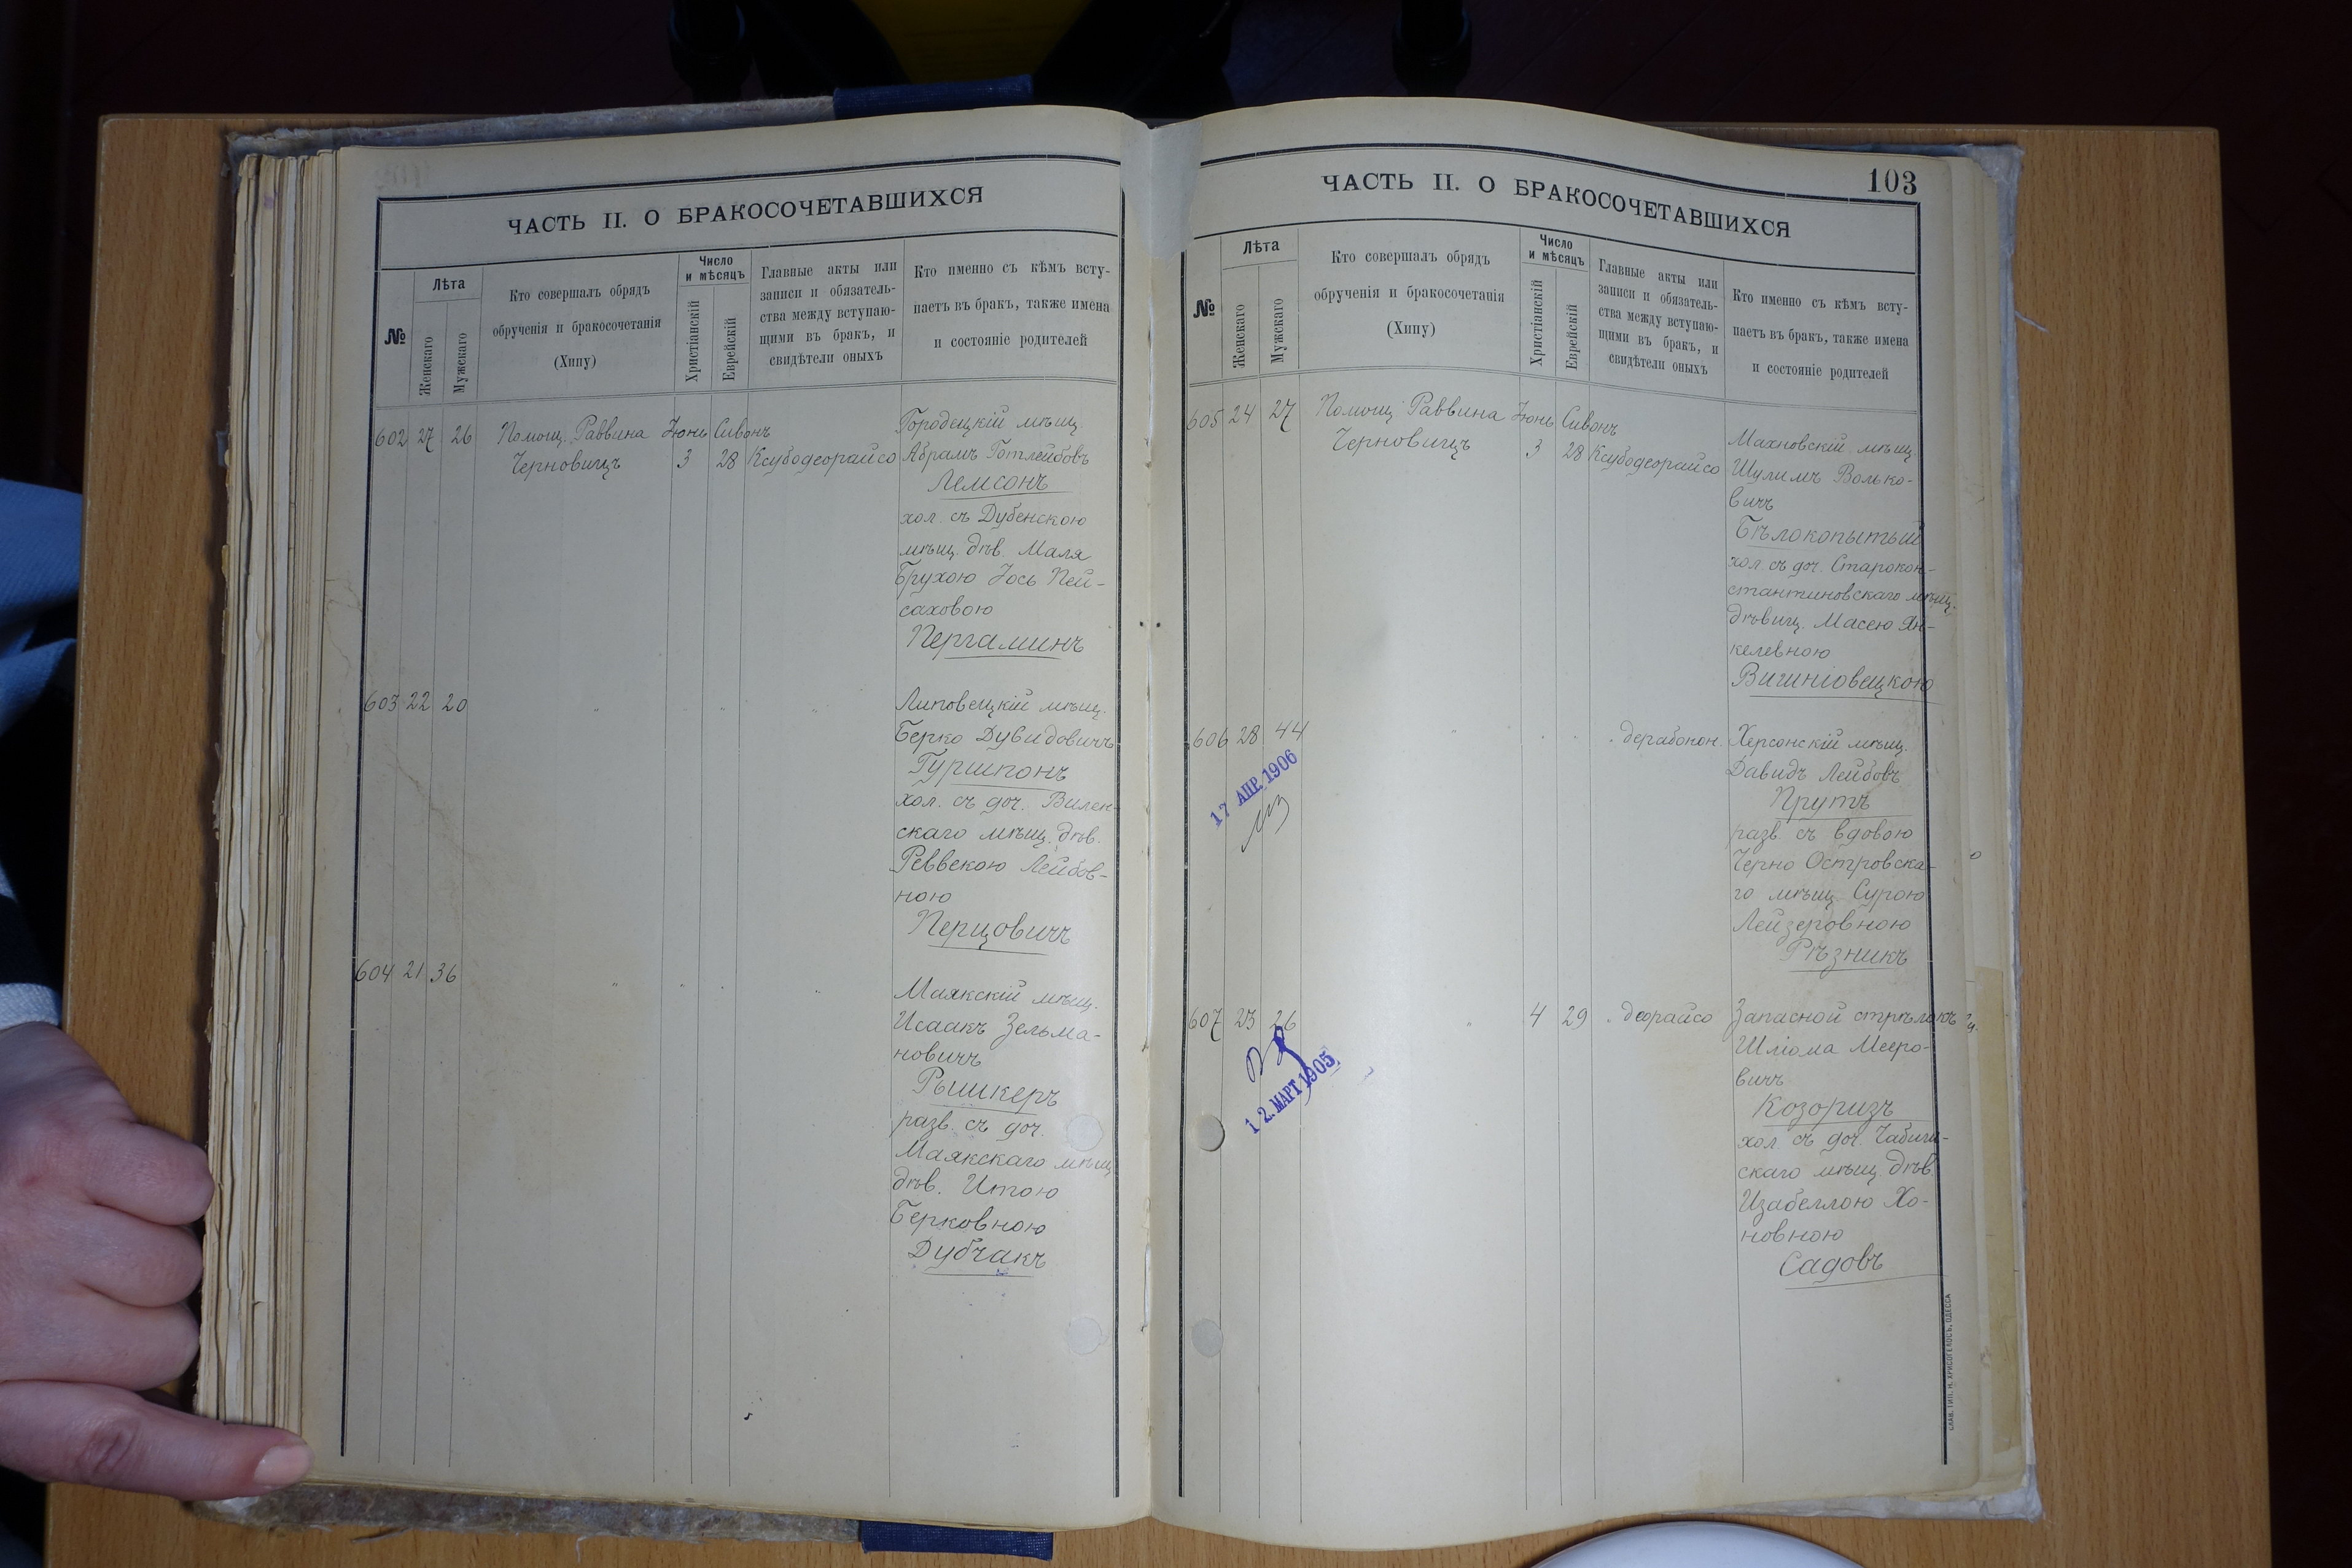 ЧАСТЬ II. О БРАКОСОЧЕТАВШИХСЯ
№
Лѣта
Женскаго
Мужскаго
Кто совершалъ обрядъ
обрученія и бракосочетанія
(Хипу)
Число
и мѣсяцъ
Христіанскій
Еврейскій
Главные акты или
записи и обязатель-
ства между вступаю-
щими въ бракъ, и
свидѣтели оныхъ
Кто именно съ кѣмъ всту-
паетъ въ бракъ, также имена
и состояніе родителей
602 27 26 Помощ. Раввина Іюнь Сивонъ
Черновицъ 3 28 Ксубодеорайсо
Городецкій мѣщ.
Абрамъ Готлейбовъ
Лемсонъ
хол. съ Дубенскою
мѣщ. дѣв. Маля
Брухою Іось Пей-
саховою
Пергаминъ
603 22 20 " " "
Липовецкій мѣщ.
Берко Дувидовичъ
Гуршпонъ
хол. съ доч. Вилен-
скаго мѣщ. дѣв.
Реввекою Лейбов-
ною
Перцовичъ
604 21 36 " " " "
Маякскій мѣщ.
Исаакъ Зельма-
новичъ
Рышкеръ
разв. съ доч.
Маякскаго мѣщ
дѣв. Итою
Берковною
Дубчакъ
103
ЧАСТЬ II. О БРАКОСОЧЕТАВШИХСЯ
№
Лѣта
Женскаго
Мужскаго
Кто совершалъ обрядъ
обрученія и бракосочетанія
(Хипу)
Число
и мѣсяцъ
Христіанскій
Еврейскій
Главные акты или
записи и обязатель-
ства между вступаю-
щими въ бракъ, и
свидѣтели оныхъ
Кто именно съ кѣмъ всту-
паетъ въ бракъ, также имена
и состояніе родителей
605 24 27 Помощ. Раввина Іюнь Сивонъ
Черновицъ 3 28 Ксубодеорайсо
Махновскій мѣщ
Шулимъ Волько-
вичъ
Бѣлокопытый
хол съ доч. Старокон-
стантиновскаго мѣщ.
дѣвиц. Масею Ян-
келевною
Вишніовецкою
606 28 44 " " " " дерабонон.
17 АПР. 1906
Херсонскій мѣщ.
Давидъ Лейбовъ
Прутъ
разв. съ вдовою
Черно Островска-
го мѣщ. Сурою
Лейзеровною
Рѣзникъ
607 23 26 " 4 29 " деорайсо
12. МАРТ 1905
Запасной стрѣлокъ
Шліома Мееро-
вичъ
Козоризъ
хол съ доч.
скаго мѣщ. дѣв
Изабеллою Хо-
новною
Садовъ
СЛАВ. ТИП. Н. ХРИСОГЕЛОСЪ, ОДЕССА